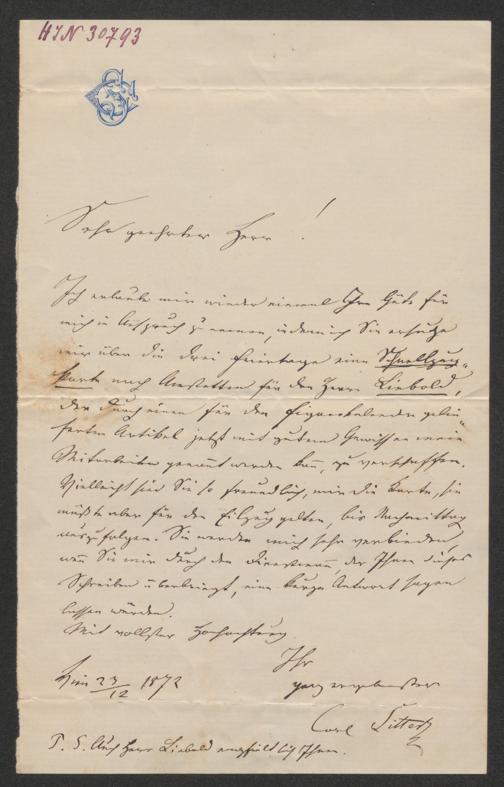 HIN 30793
Sehr geehrter Herr!
Ich erlaube mir wieder einmal Ihre Güte für
mich in Anspruch zu nemen, indem ich Sie ersuche
mir über die drei Feiertage eine Schnellzug-
karte nach Amstetten für den Herrn Liebold,
der durch einen für den Figarokalender gelie-
ferten Artikel jetzt mit gutem Gewissen mein
Mitarbeiter genannt werden kann, zu verschaffen.
Vielleicht sind Sie so freundlich, mir die Karte, sie
müßte aber für den Eilzug gelten, bis Nachmittag
auszufolgen. Sie werden mich sehr verbinden,
wenn Sie mir durch den Dienstmann, der Ihnen dieses
Schreiben überbringt, eine kurze Antwort sagen
lassen würden.
Mit vollster Hochachtung
Ihr
Wien 23/12 1872
ganz ergebenster
Carl Sitter
P. S. Auch Herr Liebold empfielt sich Ihnen.